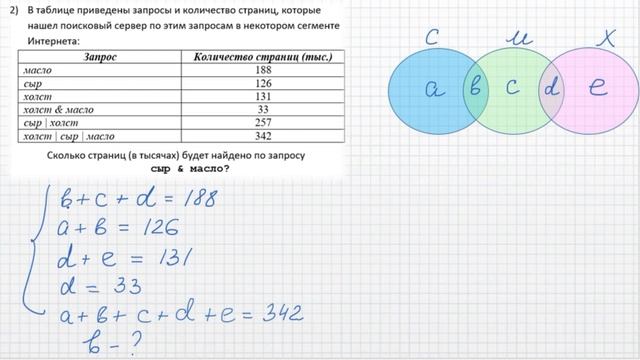 2) В таблице приведены запросы и количество страниц, которые
нашел поисковый сервер по этим запросам в некотором сегменте
Интернета:
Запрос Количество страниц (тыс.)
масло 188
сыр 126
холст 131
холст & масло 33
сыр | холст 257
холст | сыр | масло 342
Сколько страниц (в тысячах) будет найдено по запросу
сыр & масло?
с м х
a b c d e
b + c + d = 188
a + b = 126
d + e = 131
d = 33
a + b + c + d + e = 342
b - ?